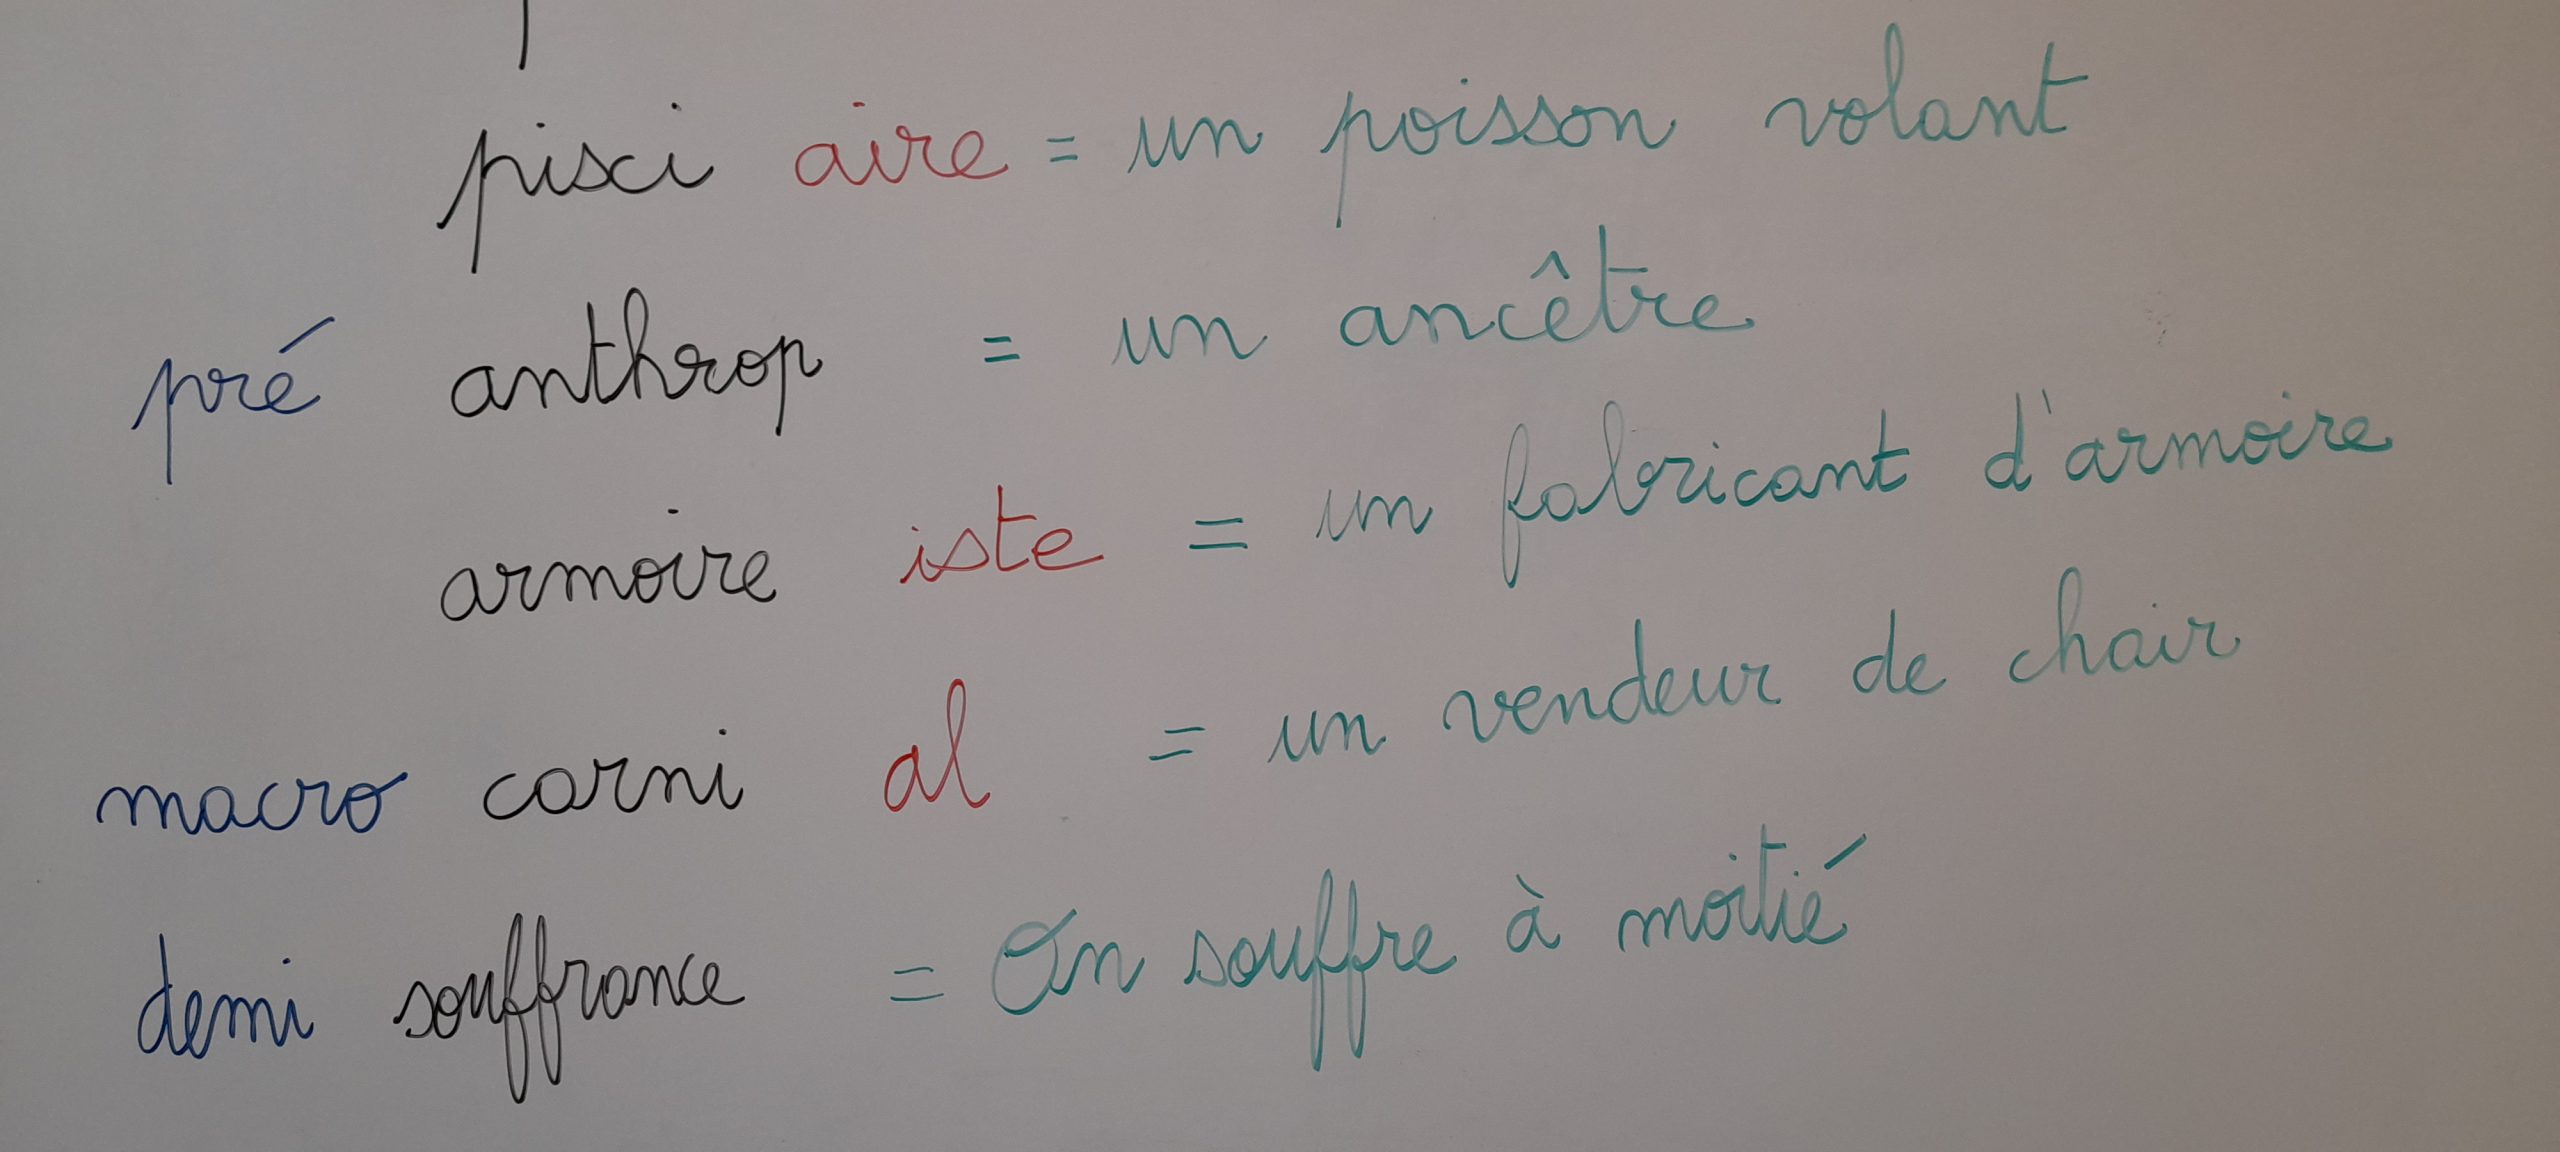 pisci aire = un poisson volant
pré anthrop = un ancêtre
armoire iste = un fabricant d'armoire
macro carni al = un vendeur de chair
demi souffrance = On souffre à moitié